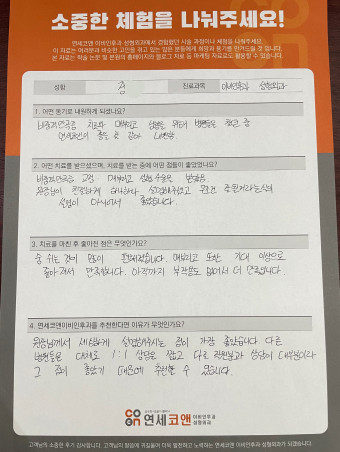 소중한 체험을 나눠주세요!
연세코앤 이비인후과·성형외과에서 경험했던 시술 과정이나 체험을 나눠주세요.
이 자료는 여러분과 비슷한 고민을 하고 있는 많은 분들에게 희망과 용기를 안겨드릴 것 입니다.
본 자료는 학술 논문 및 본원의 홈페이지와 블로그 치료 등 마케팅 자료로도 활용할 수 있습니다.
성함
진료과목 이비인후과 성형외과
1. 어떤 동기로 내원하게 되셨나요?
비중격만곡증 치료와 매부리코 성형을 위해 병원들을 찾던 중
연세코앤이 좋은 것 같아 내원함.
2. 어떤 치료를 받으셨으며, 치료를 받는 중에 어떤 점들이 좋았었나요?
비중격만곡증 교정 매부리코 성형수술을 받았음
원장님이 친절하게 하나하나 설명해주셨고
상담이 아니어서 좋았습니다.
3. 치료를 마친 후 좋아진 점은 무엇인가요?
숨 쉬는 것이 많이 편해졌습니다. 매부리코 또한 기대 이상으로
좋아져서 만족합니다. 아직까지 부작용도 없어서 더 만족입니다.
4. 연세코앤이비인후과를 추천한다면 이유가 무엇인가요?
원장님께서 세심하게 설명해주시는 점이 가장 좋았습니다 다른
병원들은 대체로 1:1 상담은 짧고 다른 직원분과 상담이 대부분이라
그 점이 좋았기 때문에 추천할 수 있습니다.
CO
@n
연세코앤 이비인후과
성형외과
고객님의 소중한 후기 감사합니다. 고객님의 말씀에 귀 기울여 더욱 발전하고 노력하는 연세코앤 이비인후과·성형외과가 되겠습니다.